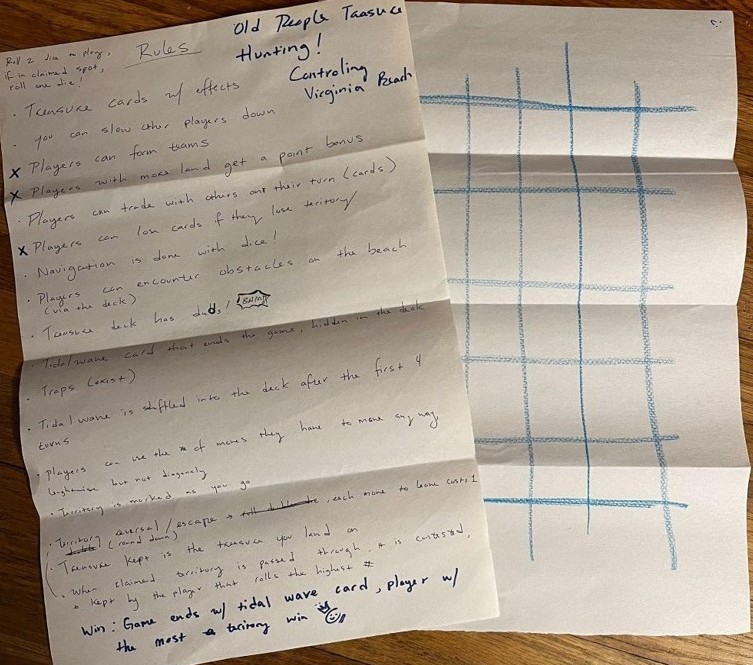 Roll 2 dice to play,
if in claimed spot,
roll one die!
Rules
Old People Treasure
Hunting!
Controling
Virginia Beach
· Treasure cards w/ effects
· you can slow other players down
x Players can form teams
x Players with more land get a point bonus
· Players can trade with others on their turn (cards)
x Players can lose cards if they lose teritory
· Navigation is done with dice!
· Players can encounter obstacles on the beach
(via the deck)
· Treasure deck has duds!
· Tidal wave card that ends the game, hidden in the deck
· Traps (exist)
· Tidal wave is shuffled into the deck after the first 4
turns
· players can use the # of moves they have to move any way
lengthwise but not diagonely
· Territory is marked as you go
· Territory reversal/escape → each move to leave costs 1
(round down)
· Treasure kept is the treasure you land on
· When claimed territory is passed through, it is contested,
& kept by the player that rolls the highest #
Win: Game ends w/ tidal wave card, player w/
the most teritory win